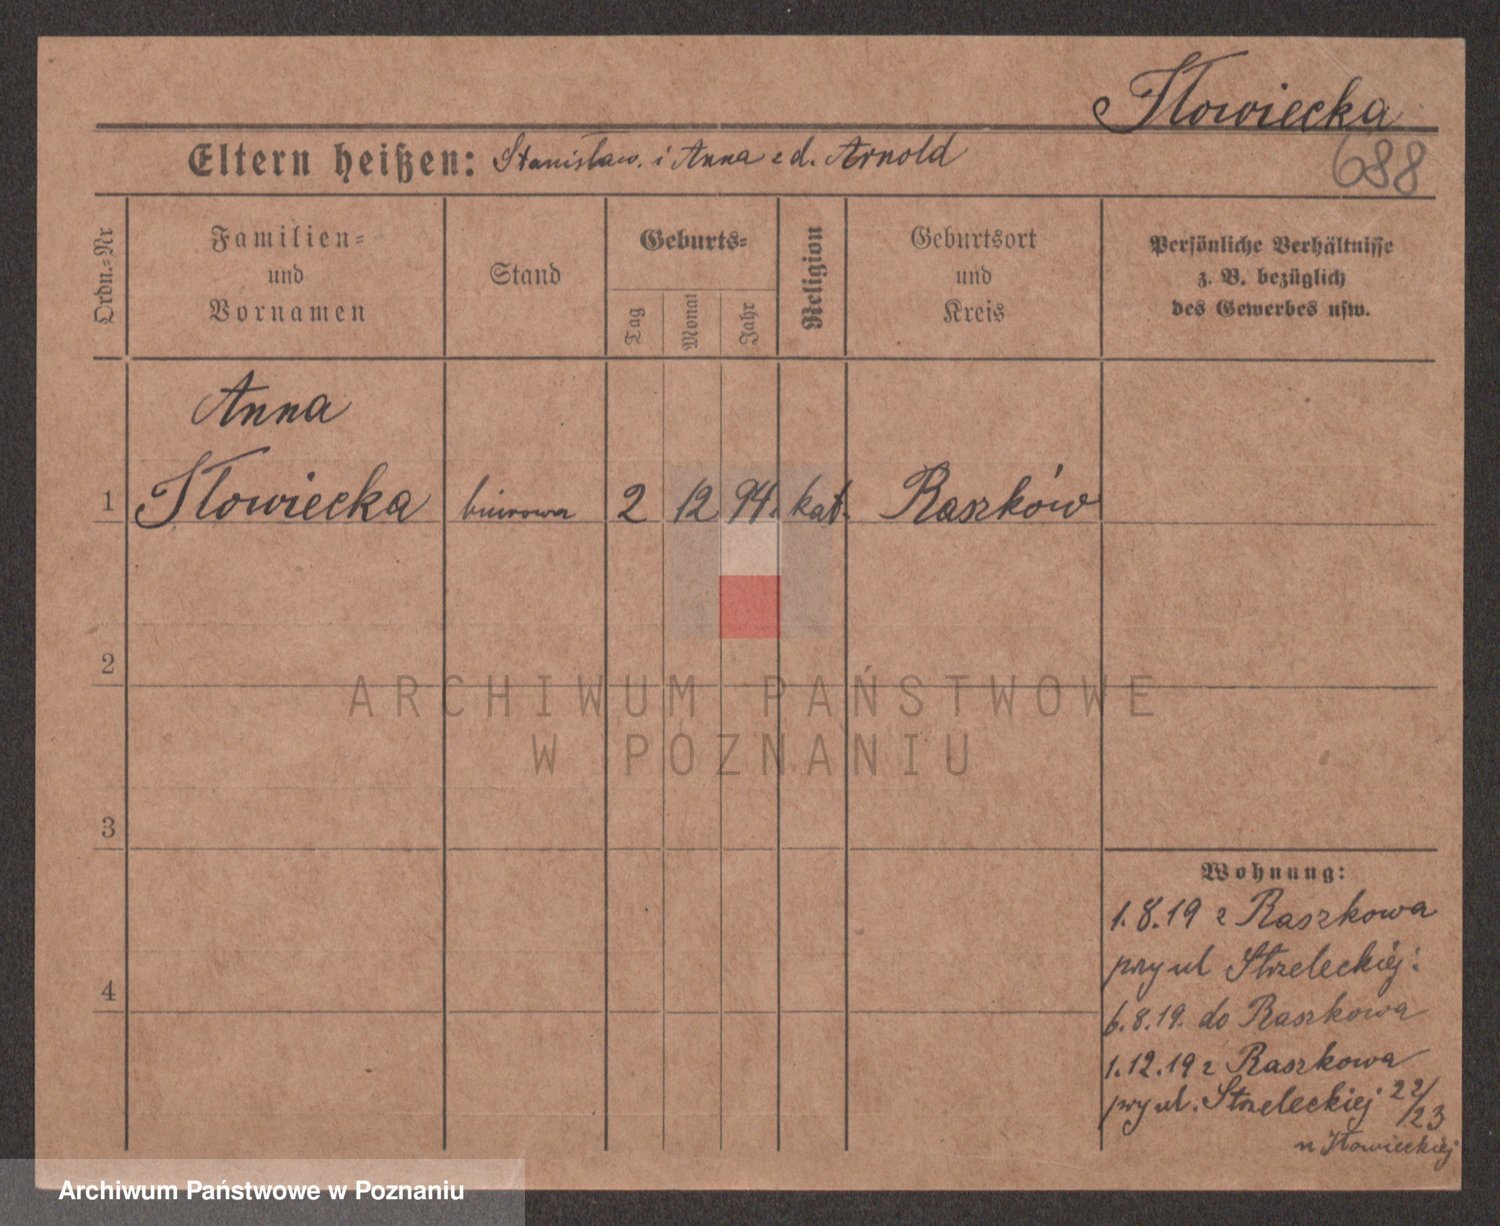 Słowiecka
688
Eltern heißen: Stanisław. i Anna z d. Arnold
Ordn.-Nr
Familien-
und
Vornamen
Stand
Geburts-
Tag
Monat
Jahr
Religion
Geburtsort
und
Kreis
Persönliche Verhältnisse
z. B. bezüglich
des Gewerbes usw.
Anna
1 Słowiecka biurowa 2 12 94. kat. Raszków
2
3
4
ARCHIWUM PAŃSTWOWE
W POZNANIU
Wohnung:
1.8.19 z Raszkowa
przy ul Strzeleckiej:
6.8.19. do Raszkowa
1.12.19 z Raszkowa
przy ul. Strzeleckiej 22/23
u Słowieckiej
Archiwum Państwowe w Poznaniu